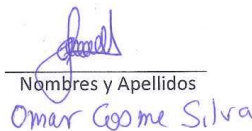 Nombres y Apellidos
Omar Cosme Silva